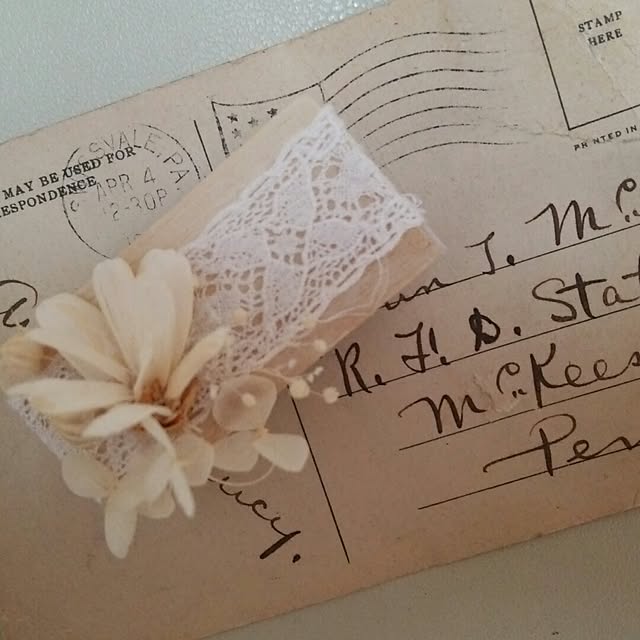 STAMP
HERE
PRINTED IN
MAY BE USED FOR
ESPONDENCE
SVALE, PA.
APR 4
2-30P
un J. McC
R. F. D. Stat
McKees
Pen
ucy.